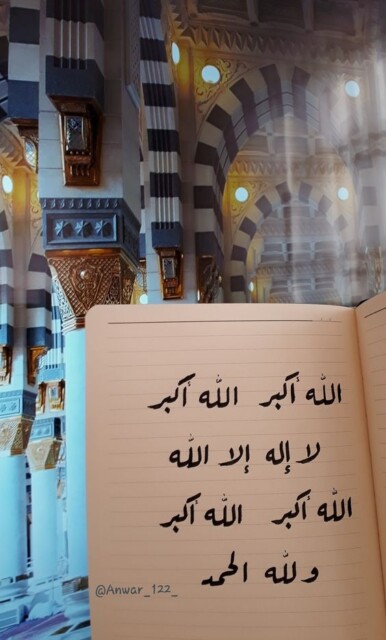 الله أكبر الله أكبر
لا إله إلا الله
الله أكبر الله أكبر
ولله الحمد
@Anwar_122_